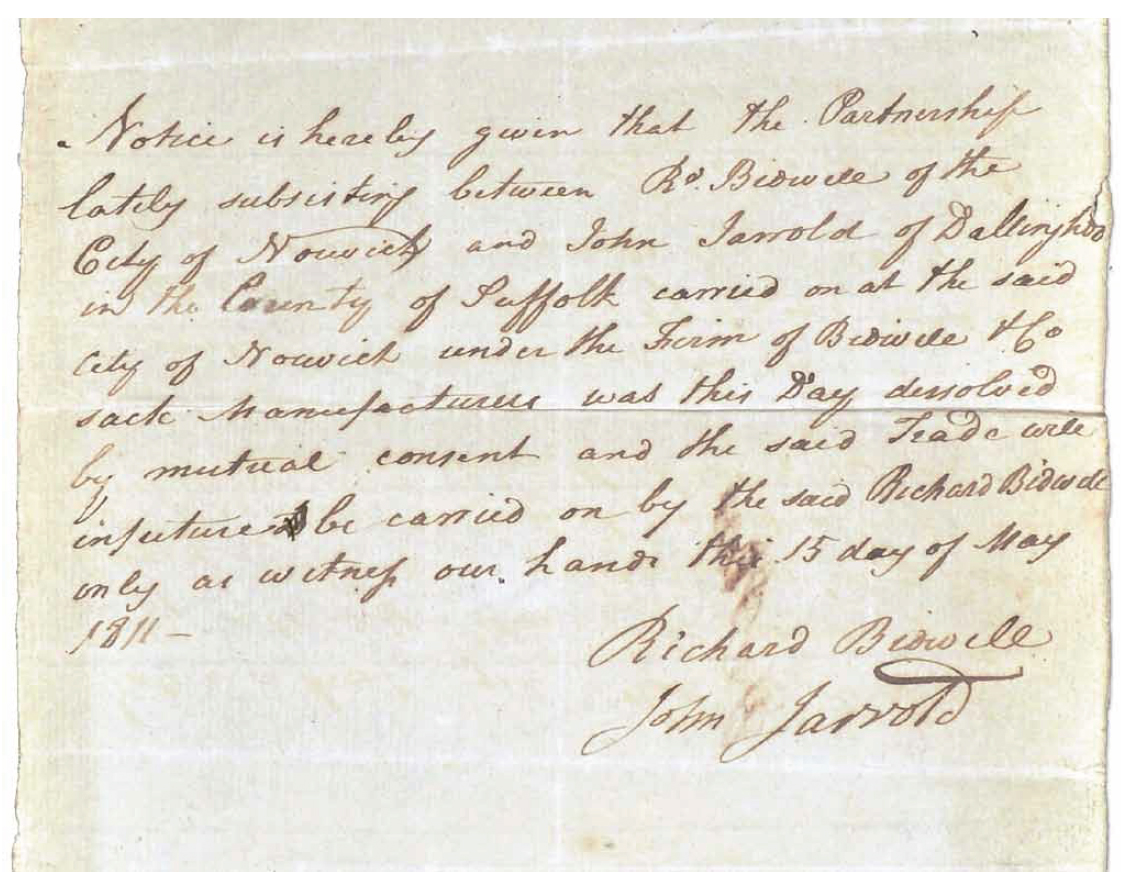 Notice is hereby given that the Partnership
lately subsisting between Rd. Bidwell of the
City of Norwich and John Jarrold of Dallinghoo
in the County of Suffolk carried on at the said
City of Norwich under the Firm of Bidwell & Co
sack Manufacturers was this Day dissolved
by mutual consent and the said Trade will
in future be carried on by the said Richard Bidwell
only as witness our hands this 15 day of May
1811 –
Richard Bidwell
John Jarrold